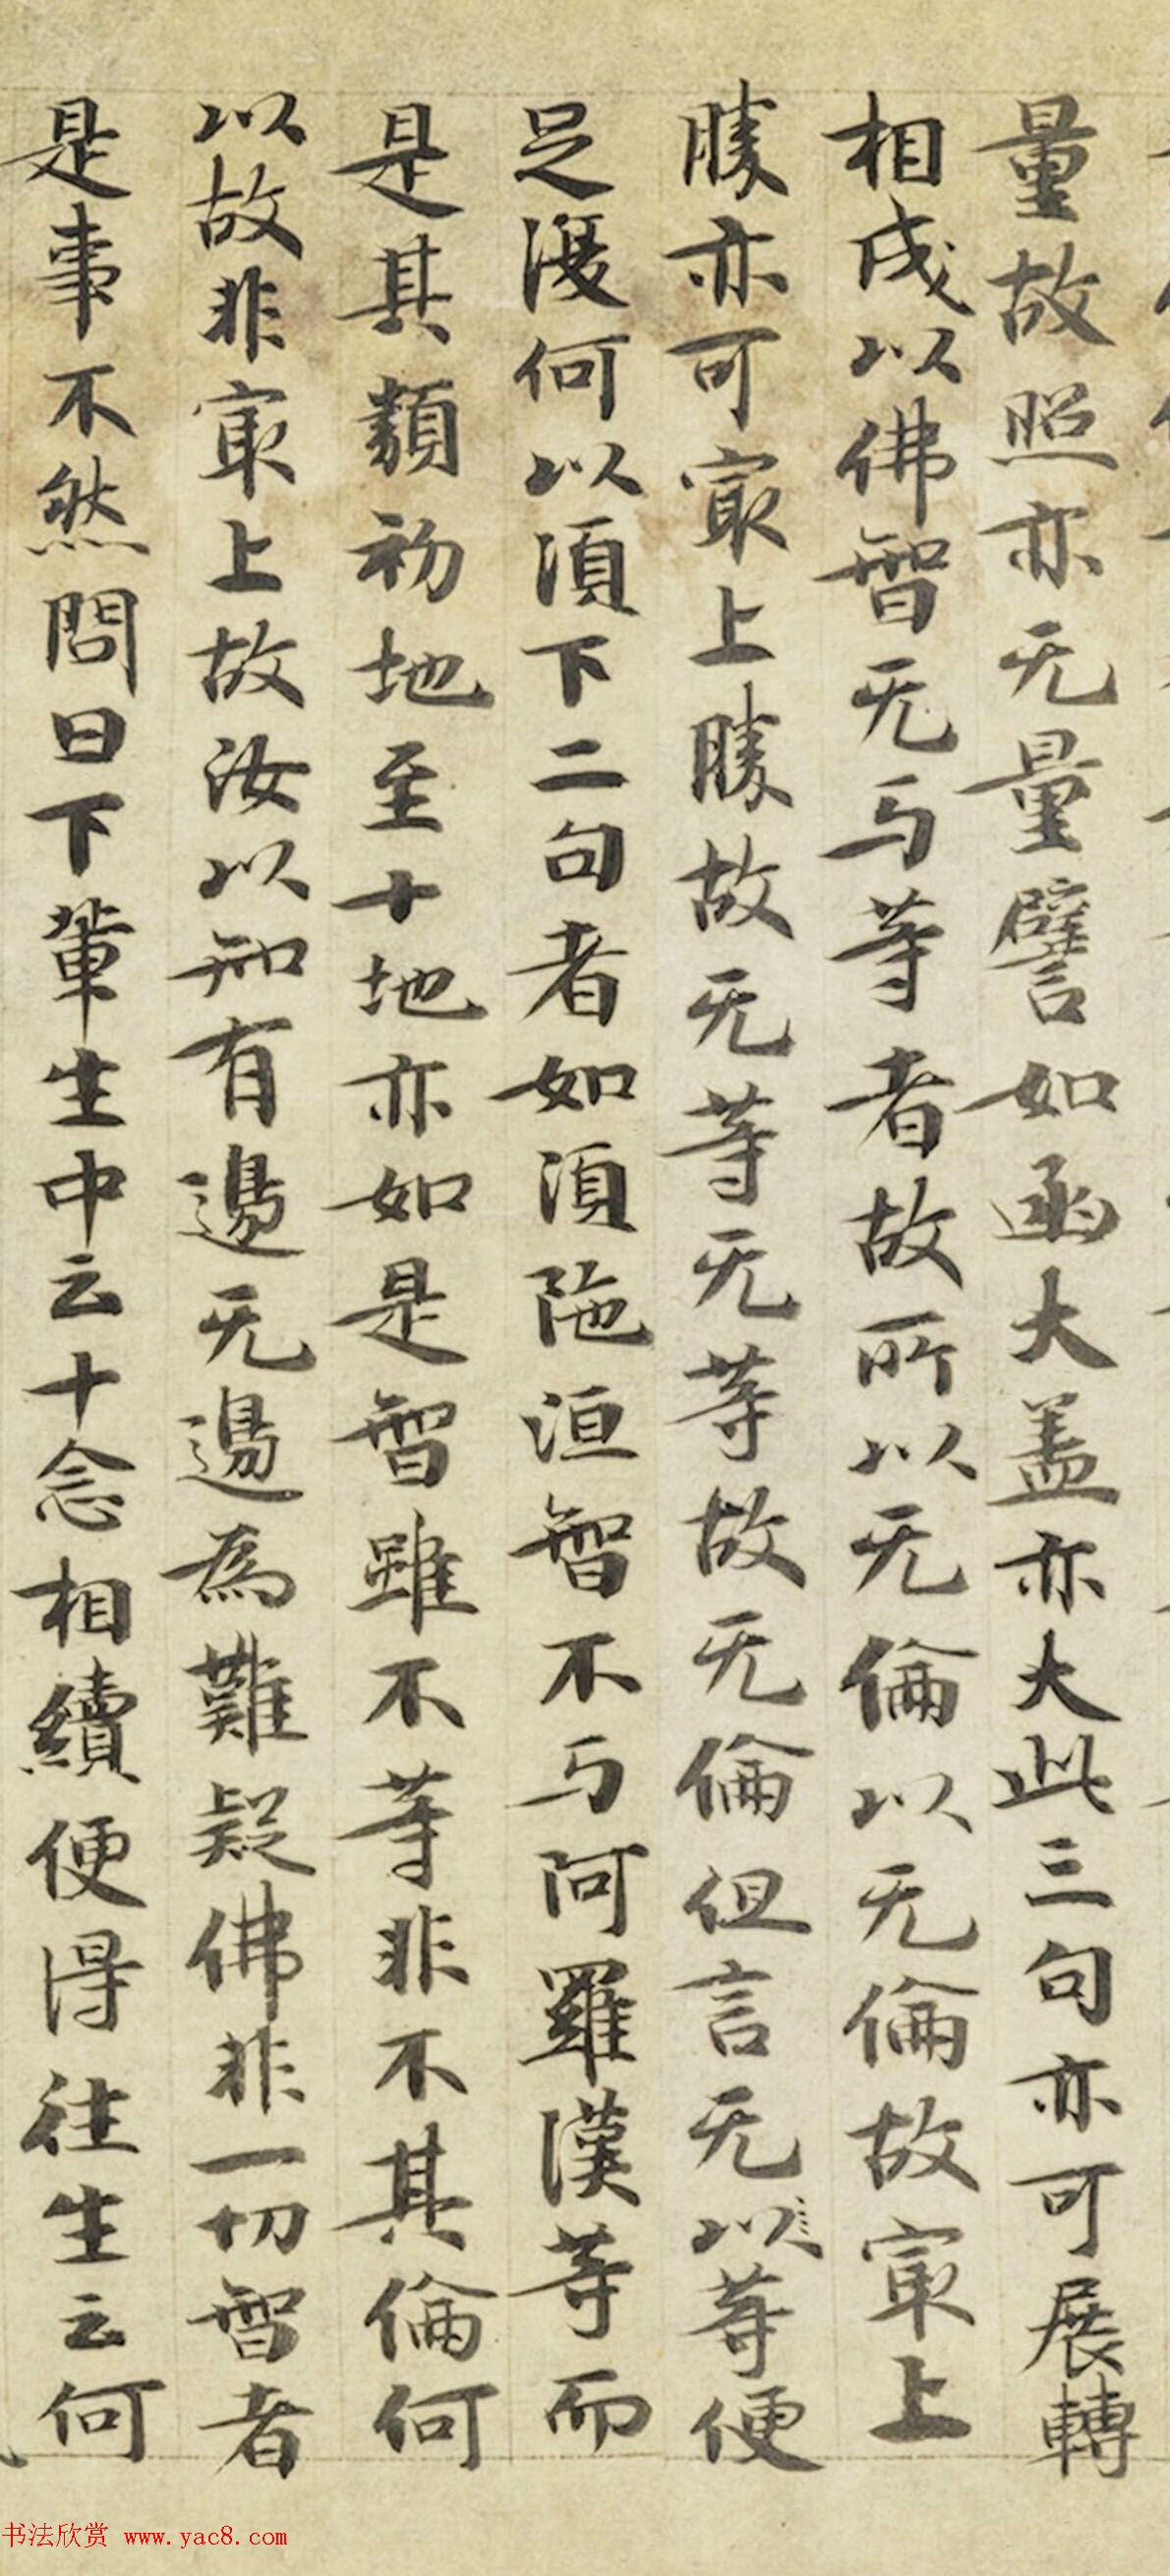 量故照亦无量譬如函大盖亦大此三句亦可展轉
相成以佛智无与等者故所以无倫以无倫故冣上
勝亦可冣上勝故无等无等故无倫但言无以等便
足復何以須下二句者如須陁洹智不与阿羅漢等而
是其類初地至十地亦如是智雖不等非不其倫何
以故非冣上故汝以知有邊无邊為難疑佛非一切智者
是事不然問曰下輩生中云十念相續便得往生云何
书法欣赏 www.yac8.com